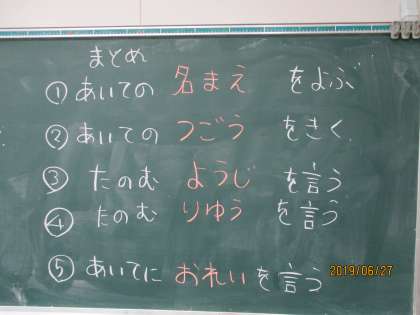 まとめ
①あいての 名まえ をよぶ
②あいての つごう をきく
③ たのむ ようじ を言う
④ たのむ りゆう を言う
⑤ あいてに おれい を言う
2019/06/27